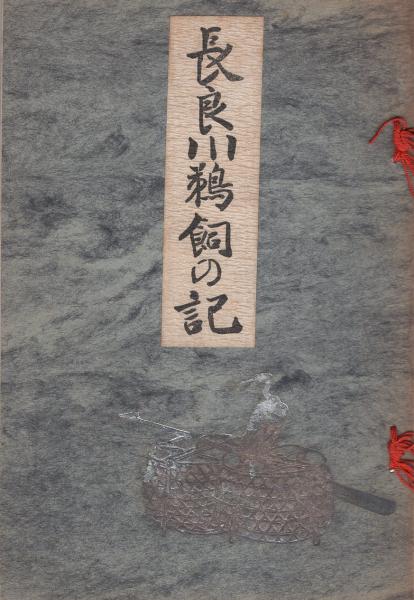 長良川鵜飼の記